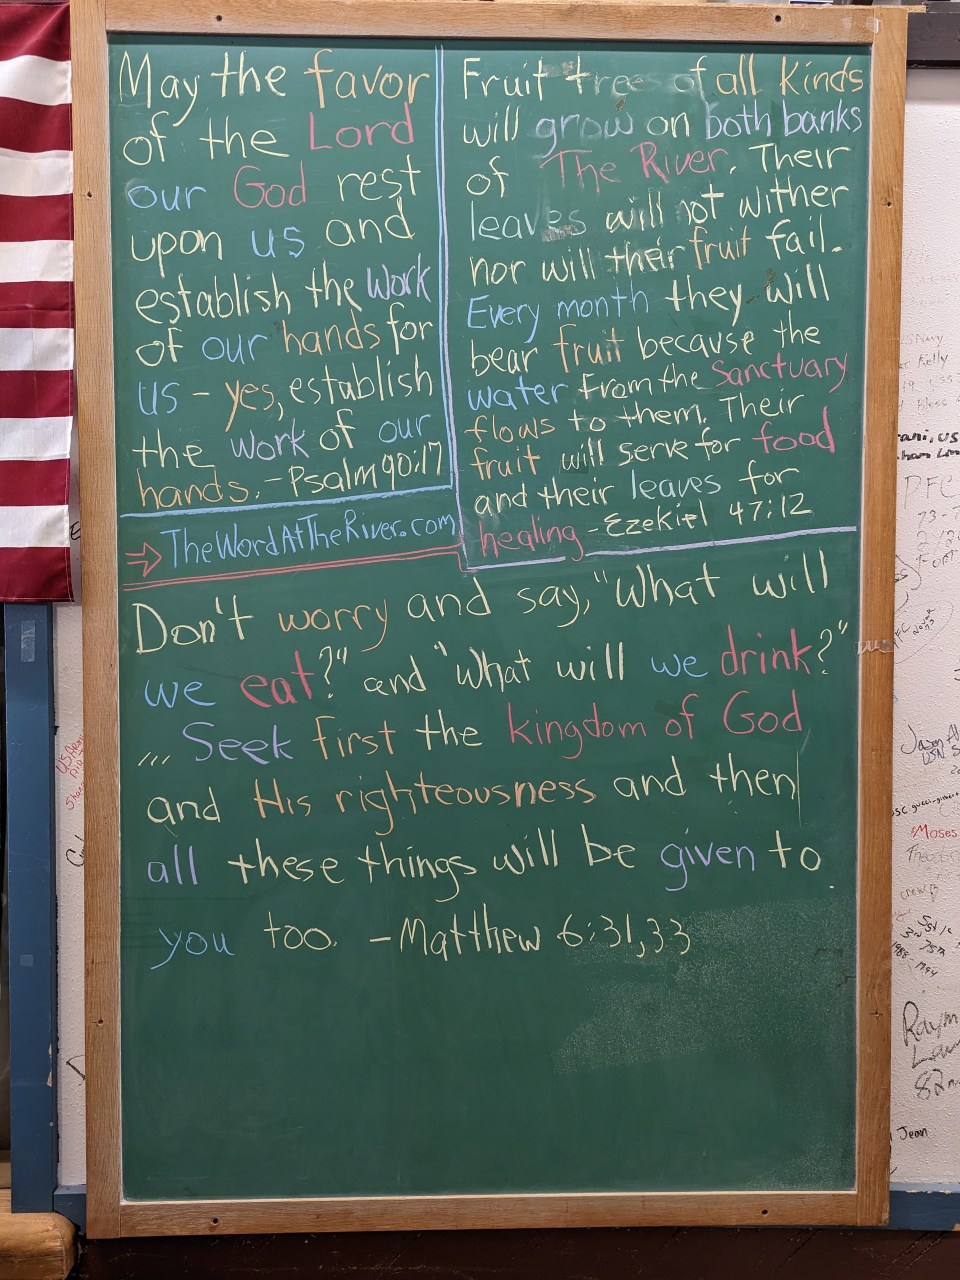 May the favor
of the Lord
our God rest
upon us and
establish the work
of our hands for
us - yes, establish
the work of our
hands. - Psalm 90:17
→ TheWordAtTheRiver.com
Fruit trees of all kinds
will grow on both banks
of The River. Their
leaves will not wither
nor will their fruit fail.
Every month they will
bear fruit because the
water from the Sanctuary
flows to them. Their
fruit will serve for food
and their leaves for
healing - Ezekiel 47:12
Don't worry and say, "What will
we eat?" and "What will we drink?"
... Seek first the kingdom of God
and His righteousness and then
all these things will be given to
you too. - Matthew 6:31,33
Kelly
PFC
Jason
USN
Moses
Raym
82
Jean